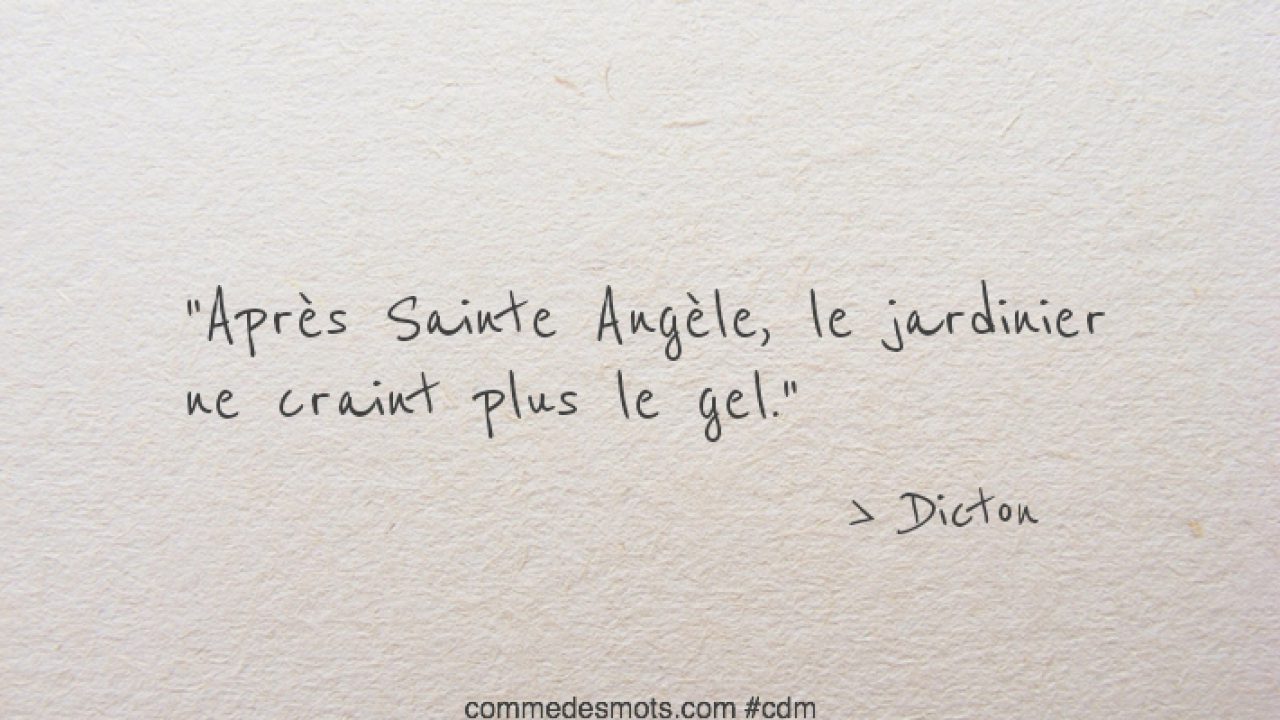 "Après Sainte Angèle, le jardinier
ne craint plus le gel."
> Dicton
commedesmots.com #cdm